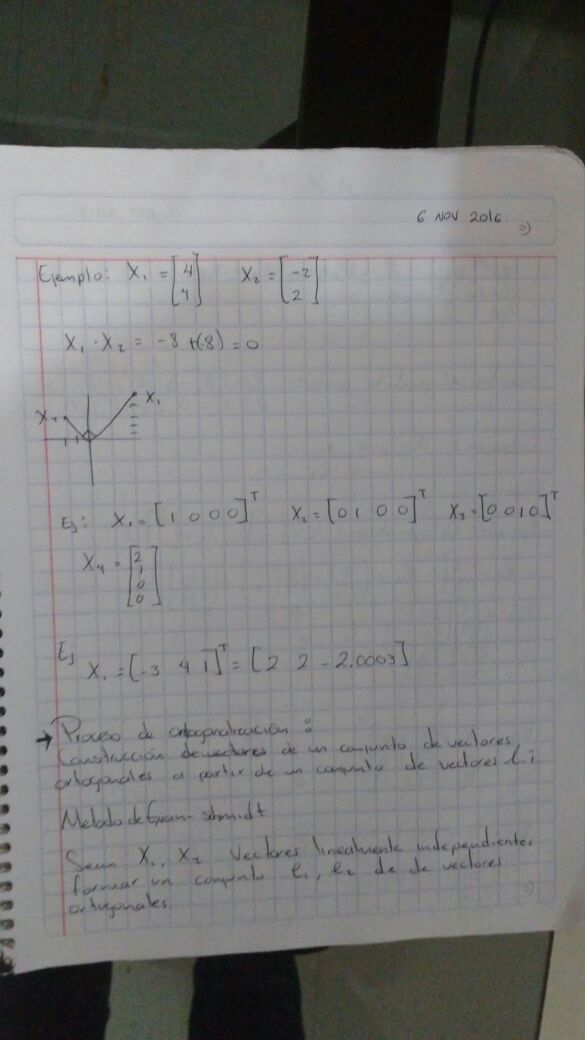 6 NOV 2016
Ejemplo: X₁ = [4 4] X₂ = [-2 2]
X₁ · X₂ = -8 + (8) = 0
X₂ X₁
Ej: X₁ = [1 0 0 0]ᵀ X₂ = [0 1 0 0]ᵀ X₃ = [0 0 1 0]ᵀ
X₄ = [2 1 0 0]
Ej X₁ = [-3 4 1]ᵀ = [2 2 -2.0003]
→ Proceso de ortogonalización:
Construcción de vectores de un conjunto de vectores
ortogonales a partir de un conjunto de vectores l.i.
Metodo de Gram-Schmidt
Sean X₁, X₂ vectores linealmente independientes
formar un conjunto e₁, e₂ de de vectores
ortogonales.